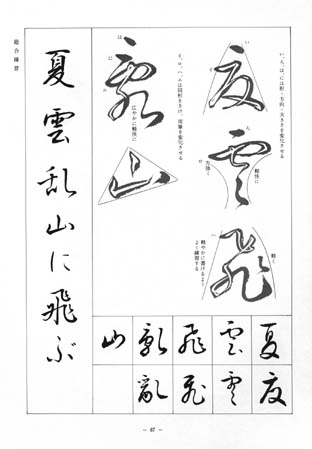 い、ろ、は、には形・方向・大きさを変化させる
い
夏
ろ
雲
軽快に
力強く
は
飛
軽く
軽やかに書けるよう
よく練習する
用筆を変化させる
乱
は
に
広やかに軽快に
山
夏雲飛亂山
夏雲飛亂
夏雲乱山に飛ぶ
総合練習
— 67 —